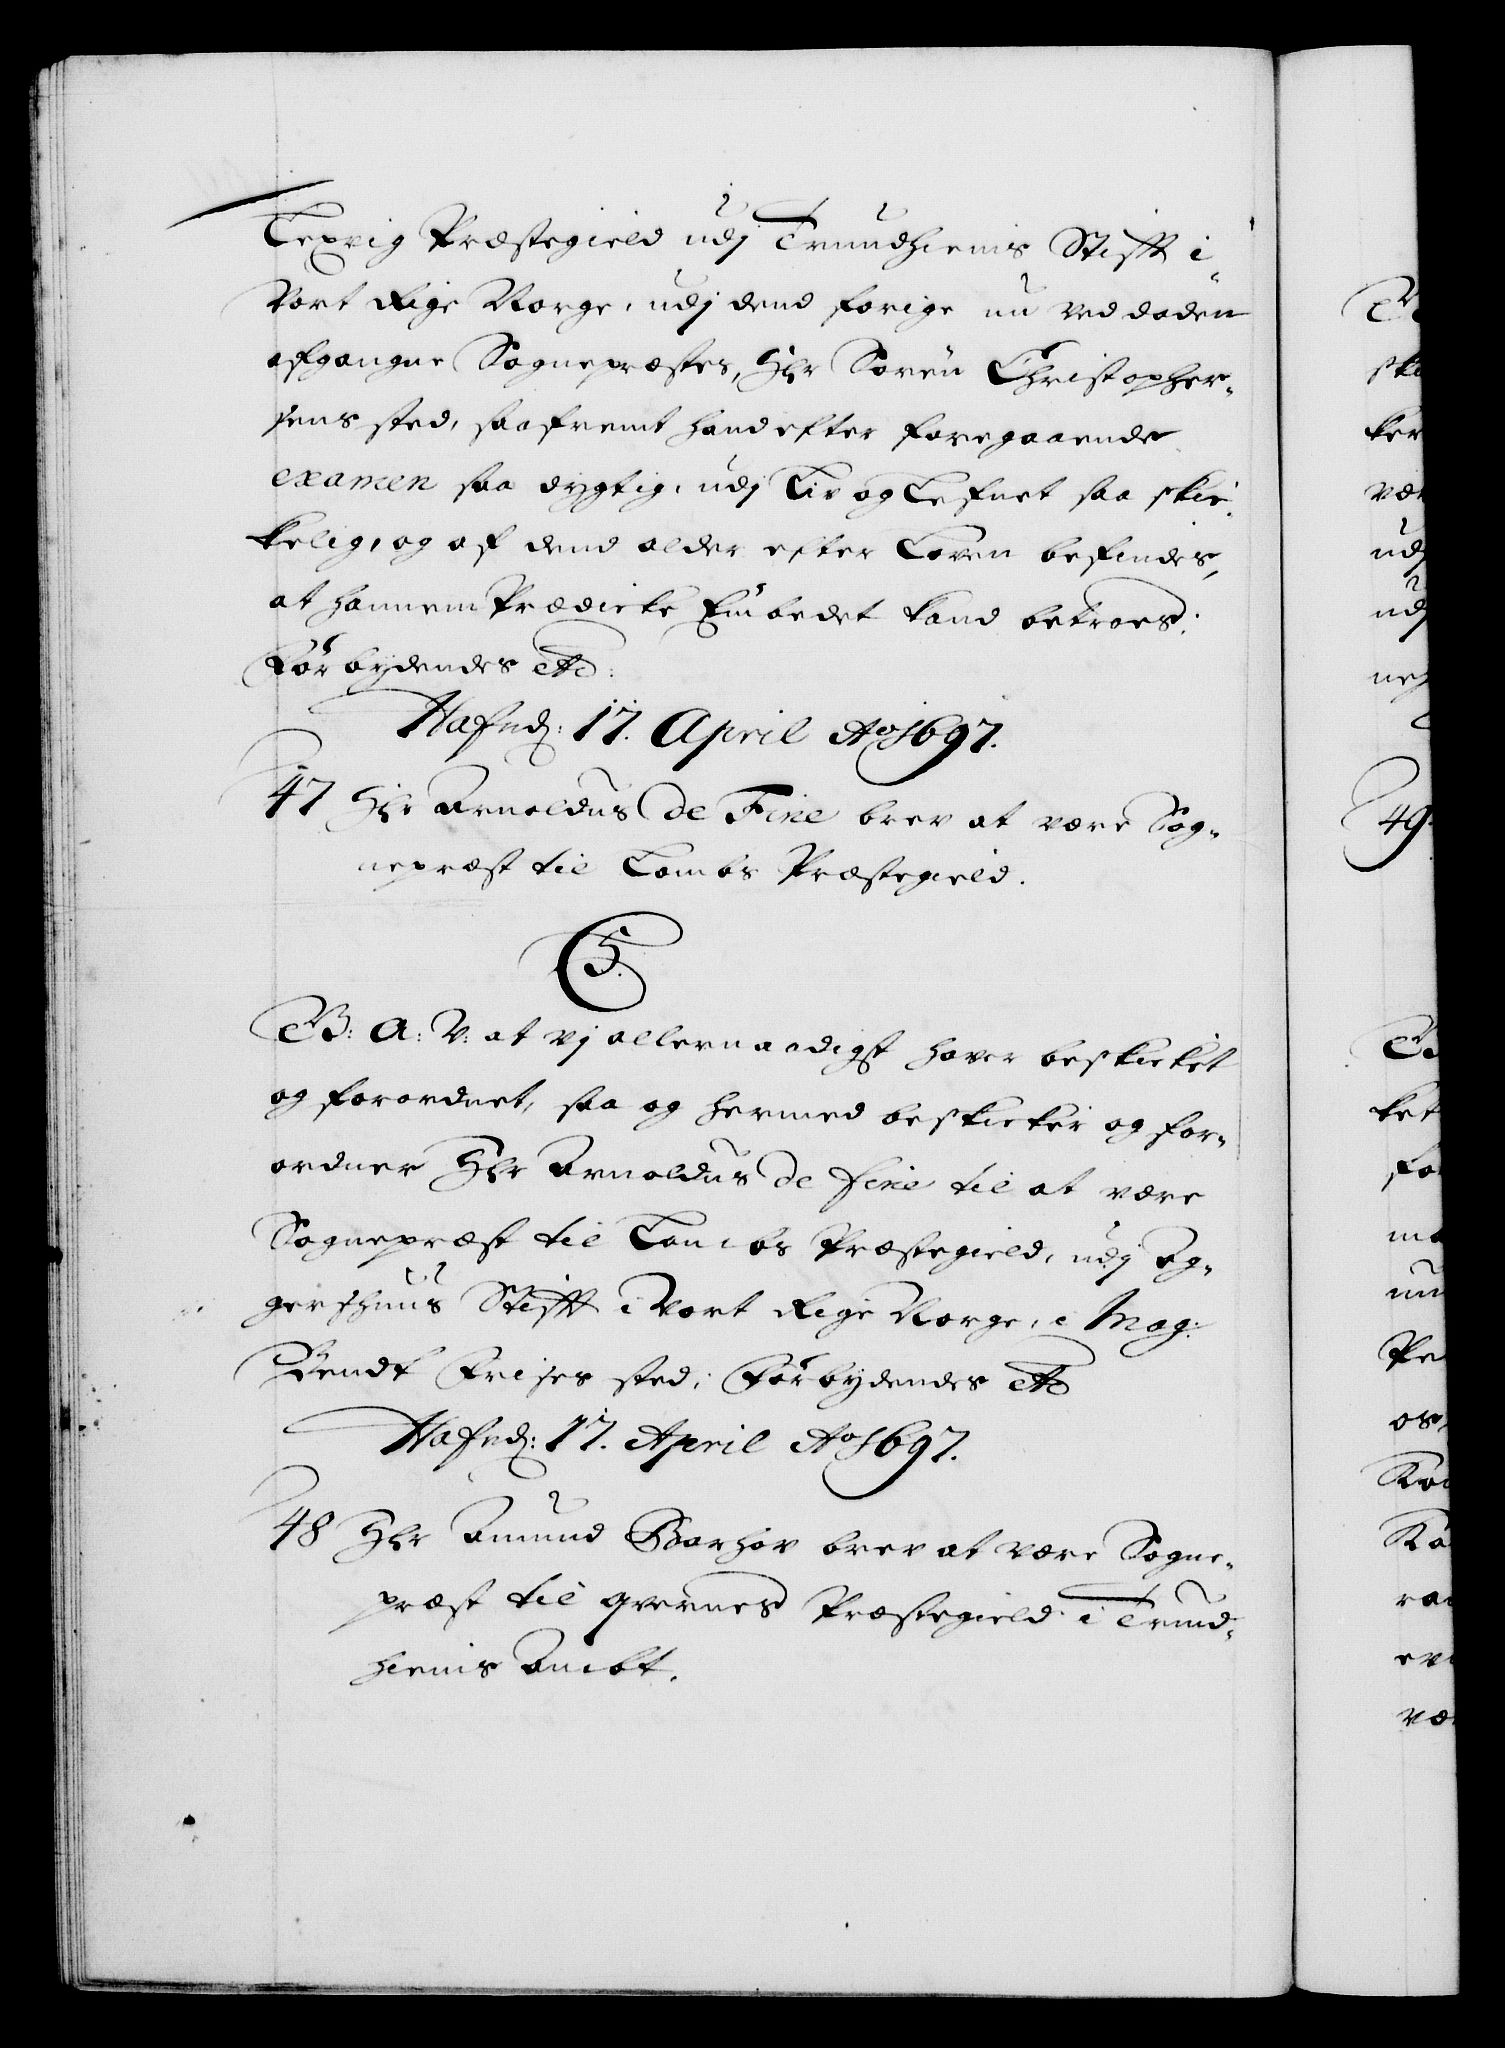 Lexvig Præstegield udj Trundhiems Stifft i
Vort Rige Norge, udj dend forige nu ved døden
afgangne Sognepræstes, Hr Søren Christopher-
sens sted, saafremt hand efter foregaaende
examen saa dygtig, udj Liv og Lefnet saa skic-
kelig, og af dend alder efter Loven befindes,
at hannem Prædicke Embedet kand betroes:
Forbydendes etc:
Hafnd: 17. April Ao 1697.
47 Hr Arnoldus de Fine brev at være Sog-
nepræst til Lombs Præstegield.
C5.
G: A: V: at vj allernaadigst haver beskicket
og forordnet, saa og hermed beskicker og for-
ordner Hr Arnoldus de fine til at være
Sognepræst til Lombs Præstegield, udj Ag-
gershuus Stifft i Vort Rige Norge, i Mag:
Bendt Frises sted; Forbydendes etc
Hafnd: 17. April Ao 1697.
48 Hr Amund Barhov brev at være Sogne-
præst til qvernes Præstegield i Trund-
hiems Ambt.
49.